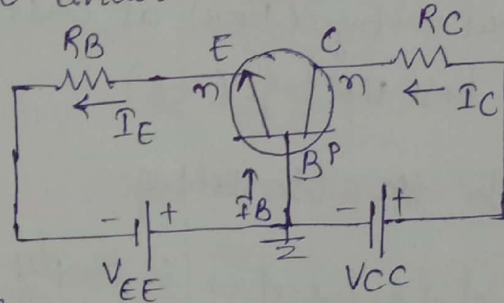 RB E C RC
n n
IE IC
B P
IB
- + - +
VEE VCC